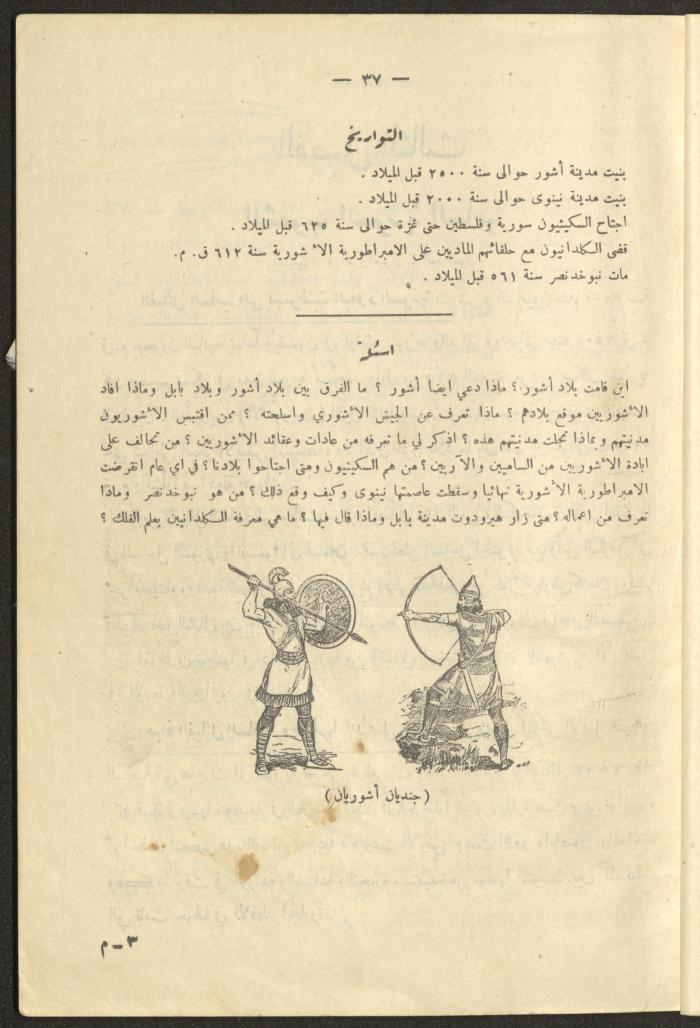 — ٣٧ —
التواريخ
بنيت مدينة أشور حوالى سنة ٢٥٠٠ قبل الميلاد .
بنيت مدينة نينوى حوالى سنة ٢٠٠٠ قبل الميلاد .
اجتاح السكيثيون سورية وفلسطين حتى غزة حوالى سنة ٦٢٥ قبل الميلاد .
قضى الكلدانيون مع حلفائهم الماديين على الامبراطورية الأشورية سنة ٦١٢ ق. م.
مات نبوخدنصر سنة ٥٦١ قبل الميلاد .
اسئلة
اين قامت بلاد أشور؟ ماذا دعي ايضاً أشور ؟ ما الفرق بين بلاد أشور وبلاد بابل وماذا افاد
الأشوريين موقع بلادهم ؟ ماذا تعرف عن الجيش الأشوري واسلحته ؟ ممن اقتبس الأشوريون
مدنيتهم وبماذا تجلت مدنيتهم هذه ؟ اذكر لي ما تعرفه من عادات وعقائد الأشوريين ؟ من تحالف على
ابادة الأشوريين من الساميين والآريين ؟ من هم السكيثيون ومتى اجتاحوا بلادنا ؟ في اي عام انقرضت
الامبراطورية الأشورية نهائيا وسقطت عاصمتها نينوى وكيف وقع ذلك ؟ من هو نبوخدنصر وماذا
تعرف من اعماله ؟ متى زار هيرودوت مدينة بابل وماذا قال فيها ؟ ما هي معرفة الكلدانيين بعلم الفلك ؟
(جنديان أشوريان)
٣ـ م